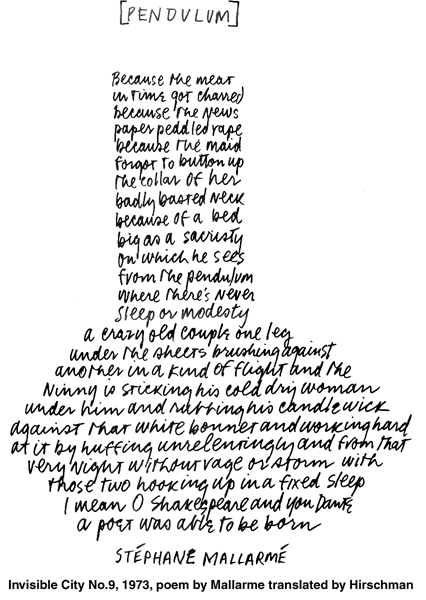 [PENDULUM]
Because the meat
in time got charred
because the news
paper peddled rape
because the maid
forgot to button up
the collar of her
badly basted neck
because of a bed
big as a sacristy
on which he sees
from the pendulum
where there's never
sleep or modesty
a crazy old couple one leg
under the sheets brushing against
another in a kind of flight and the
Ninny is sticking his cold dry woman
under him and rubbing his candlewick
against that white bonnet and working hard
at it by huffing unrelentingly and from that
very night without rage or storm with
those two hooking up in a fixed sleep
I mean O Shakespeare and you Dante
a poet was able to be born
STÉPHANE MALLARMÉ
Invisible City No.9, 1973, poem by Mallarme translated by Hirschman